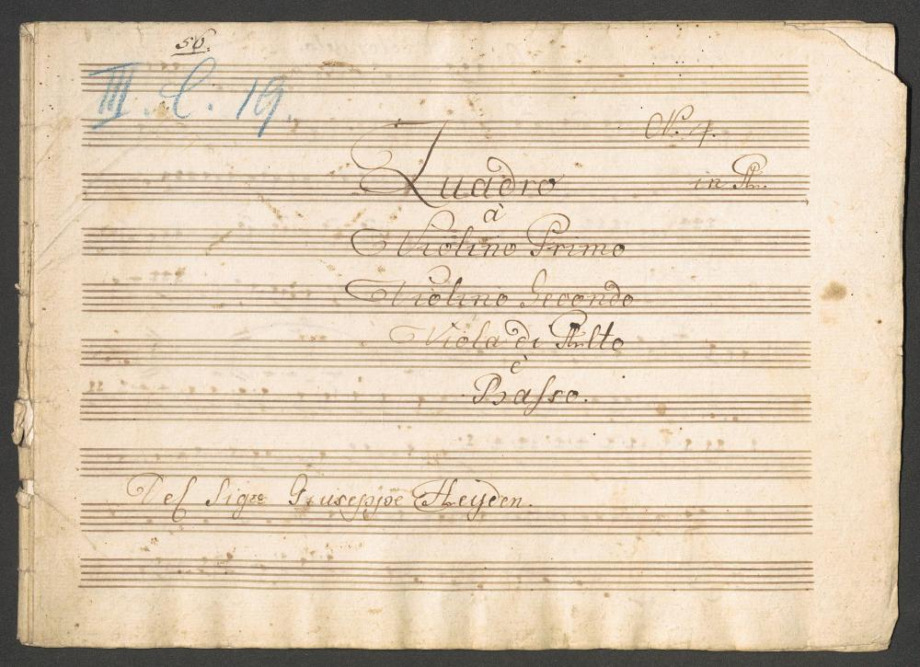 56.
III. C. 19.
No. 4.
Quadro in A.
à
Violino Primo
Violino Secondo
Viola di Alto
è
Basso.
Del Sigre Giuseppe Heyden.